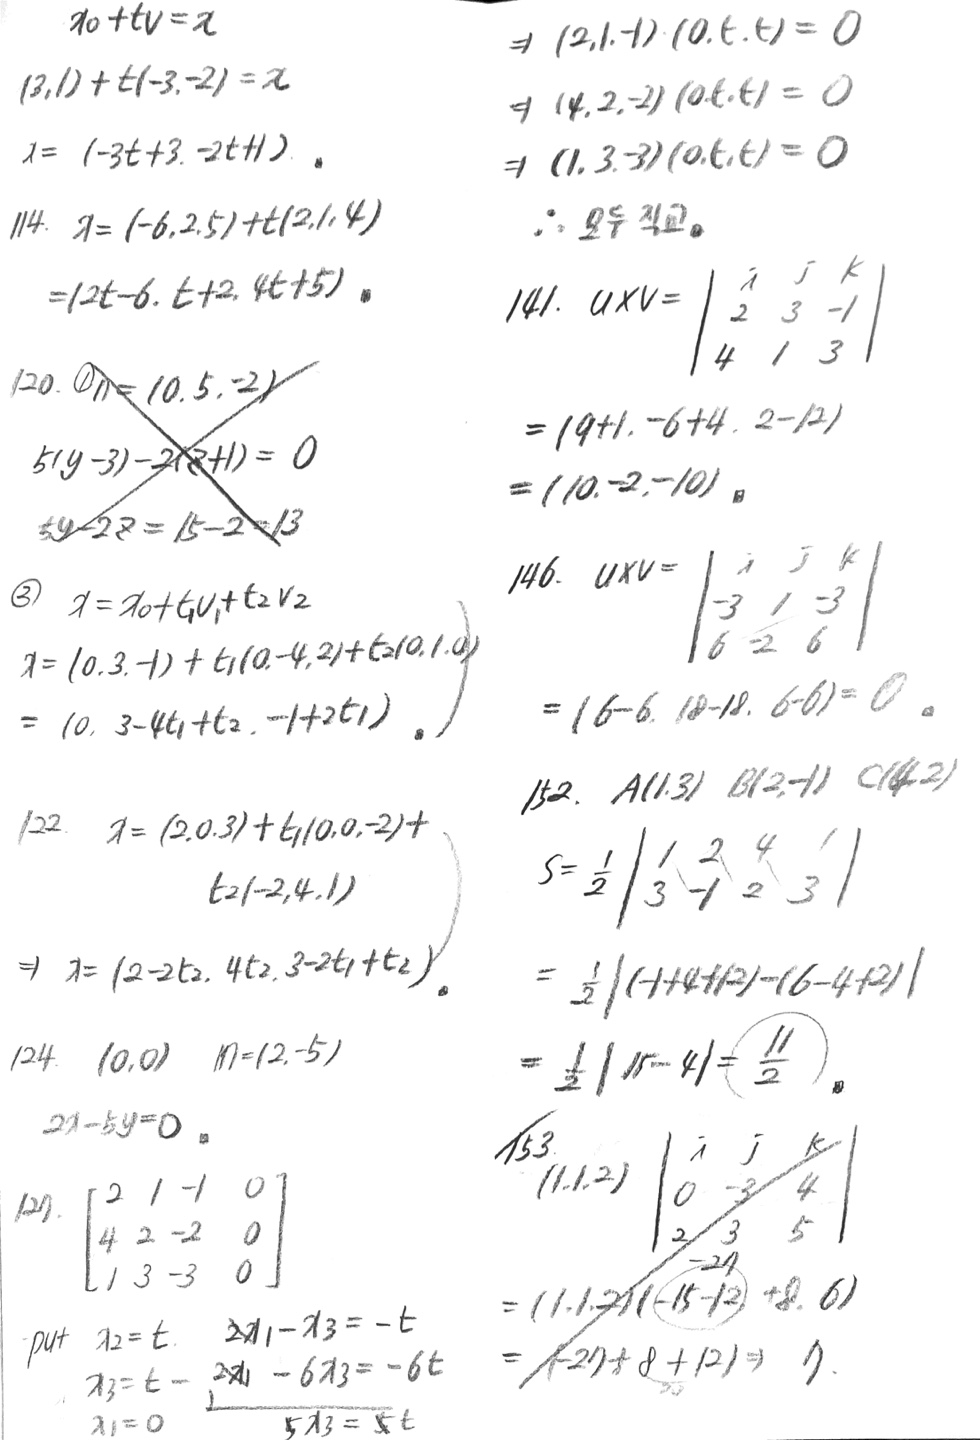 x₀+tv=x
(3,1)+t(-3.-2)=x
x= (-3t+3. -2t+1).
114. x=(-6.2.5)+t(2.1.4)
=(2t-6. t+2. 4t+5).
120. ① n=(0.5.-2)
5(y-3)-2(z+1)=0
5y-2z=15-2=13
③ x=x₀+t₁v₁+t₂v₂
x=(0.3.-1)+t₁(0.-4.2)+t₂(0.1.0)
= (0. 3-4t₁+t₂. -1+2t₁).
122. x=(2.0.3)+t₁(0.0.-2)+
t₂(-2,4.1)
⇒ x=(2-2t₂. 4t₂. 3-2t₁+t₂).
124. (0,0) n=(2,-5)
2x-5y=0.
127. [2 1 -1 0
4 2 -2 0
1 3 -3 0]
put x₂=t. 2x₁-x₃=-t
x₃=t - 2x₁ -6x₃=-6t
x₁=0 5x₃=5t
⇒ (2,1.-1)·(0.t.t)=0
⇒ (4,2,-2)(0.t.t)=0
⇒ (1.3.-3)(0.t.t)=0
∴ 모두 직교.
141. u×v= | i j k
2 3 -1
4 1 3 |
=(9+1. -6+4. 2-12)
=(10.-2.-10).
146. u×v= | i j k
-3 1 -3
6 -2 6 |
=(6-6. 18-18. 6-6)=0.
152. A(1.3) B(2,-1) C(4,2)
S=½ | 1 2 4 1
3 -1 2 3 |
= ½|(-1+4+12)-(6-4+2)|
= ½|15-4|= 11/2.
153. | i j k
(1.1.2) 0 -3 4
2 3 5 |
-27
=(1.1.2)(-15-12 +8. 6)
= (-27+8+12)⇒ 7.